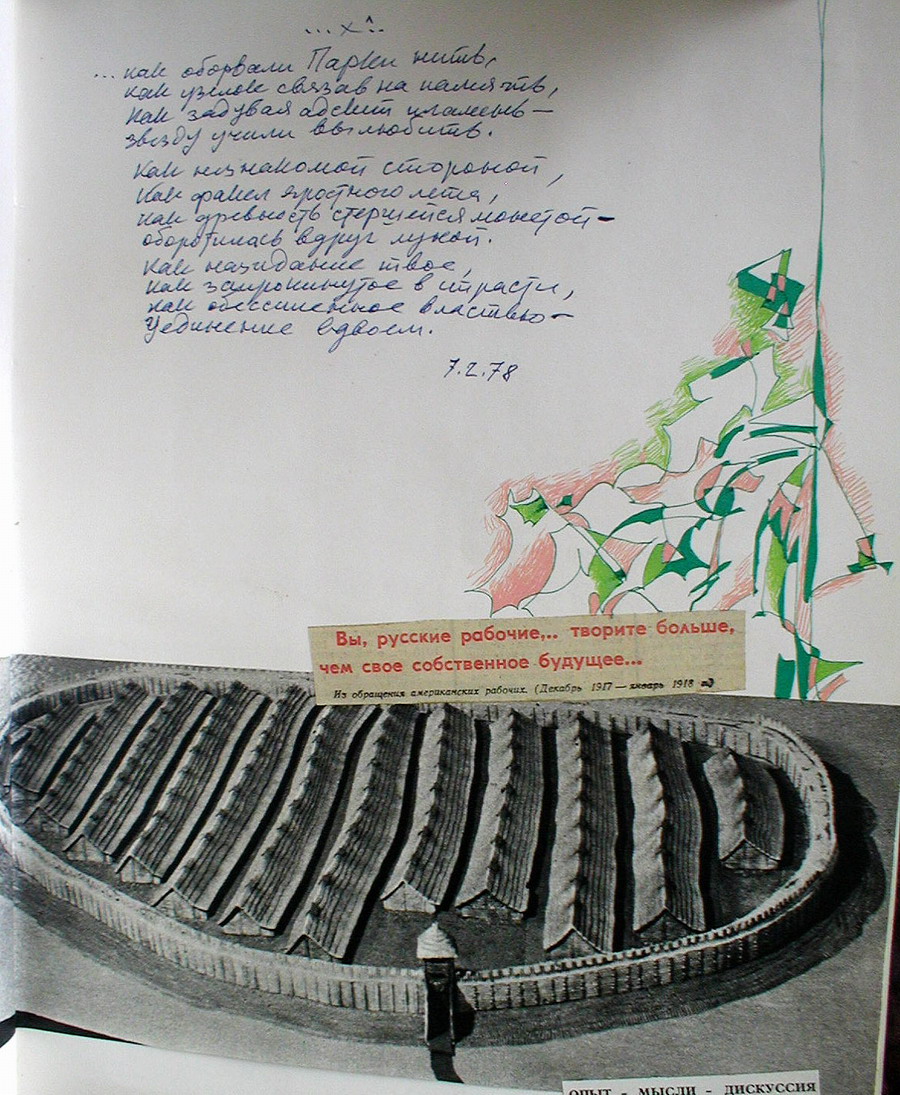 ...как оборвали Парки нить,
как узелок связав на память,
как задувая адский пламень—
звезду учили вы любить.
как незнакомой стороной,
как факел яростного лета,
как древность стершейся монетой—
оборотилась вдруг луной.
как назидание твое,
как запрокинутое в страсти,
как обессиленное властью—
Уединение вдвоем.
7.2.78
Вы, русские рабочие,.. творите больше,
чем свое собственное будущее...
Из обращения американских рабочих. (Декабрь 1917 — январь 1918
ОПЫТ - МЫСЛИ - ДИСКУССИЯ